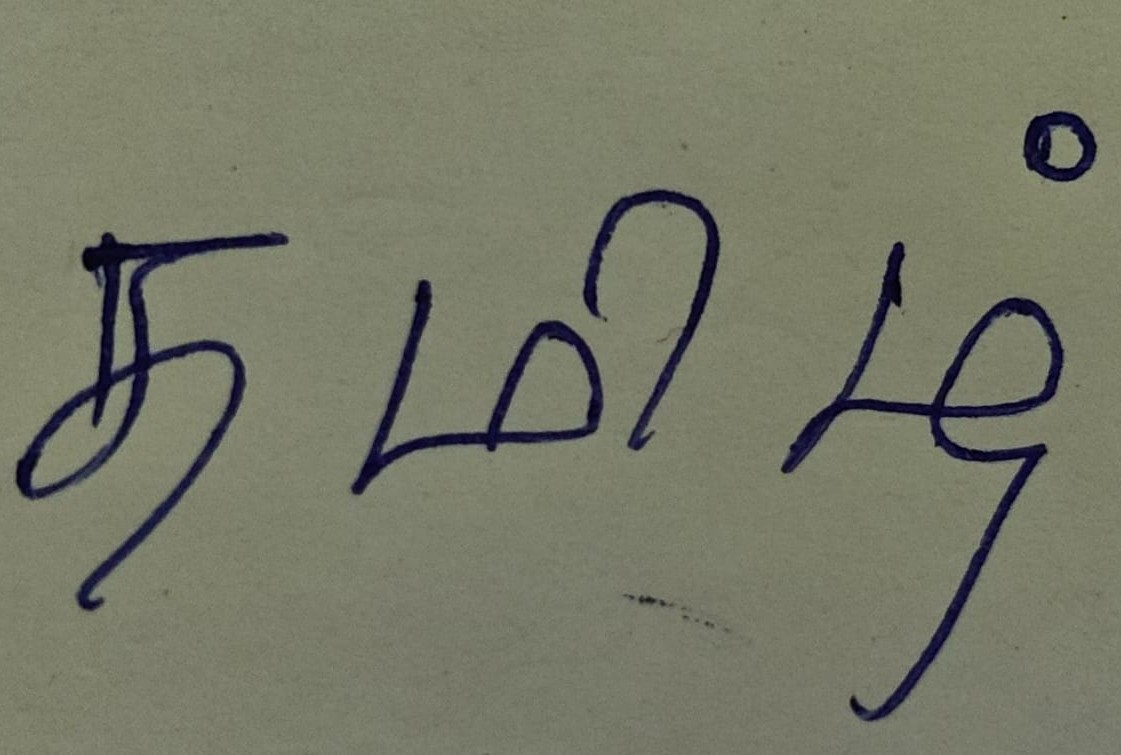 தமிழ்